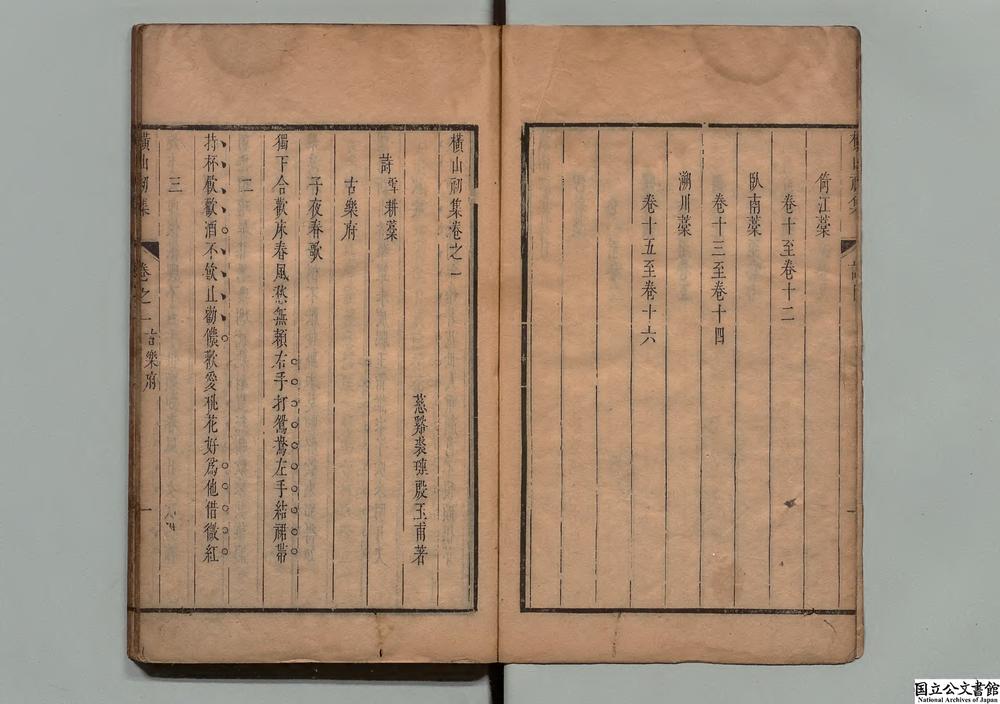 橫山初集
倚江藳
卷十至卷十二
臥南藳
卷十三至卷十四
溯川藳
卷十五至卷十六
橫山初集卷之一
慈谿裘璉殷玉甫著
詩 耕藳
古樂府
子夜春歌
獨下合歡床春風愁無賴右手打鴛鴦左手結裙帶
二
持杯歡歡酒不飲止勸儂歌愛桃花好爲他借微紅
三
橫山初集
卷之一
古樂府
一
国立公文書館
National Archives of Japan